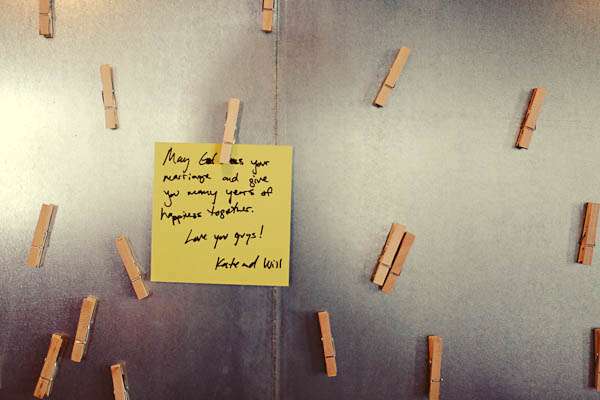 May God your
marriage and give
you many years of
happiness together.
Love you guys!
Kate and Will